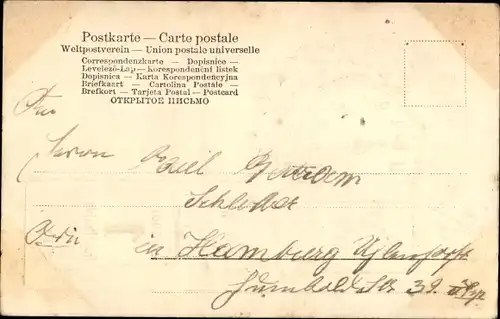 Postkarte — Carte postale
Weltpostverein — Union postale universelle
Correspondenzkarte — Dopisnice —
Levelező-Lap — Korespondenční lístek
Dopisnica — Karta Korespondencyjna
Briefkaart — Cartolina Postale —
Brefkort — Tarjeta Postal — Postcard
ОТКРЫТОЕ ПИСЬМО
An
Herrn
in Hamburg Uhlenhorst
Humboldtstr 39. II